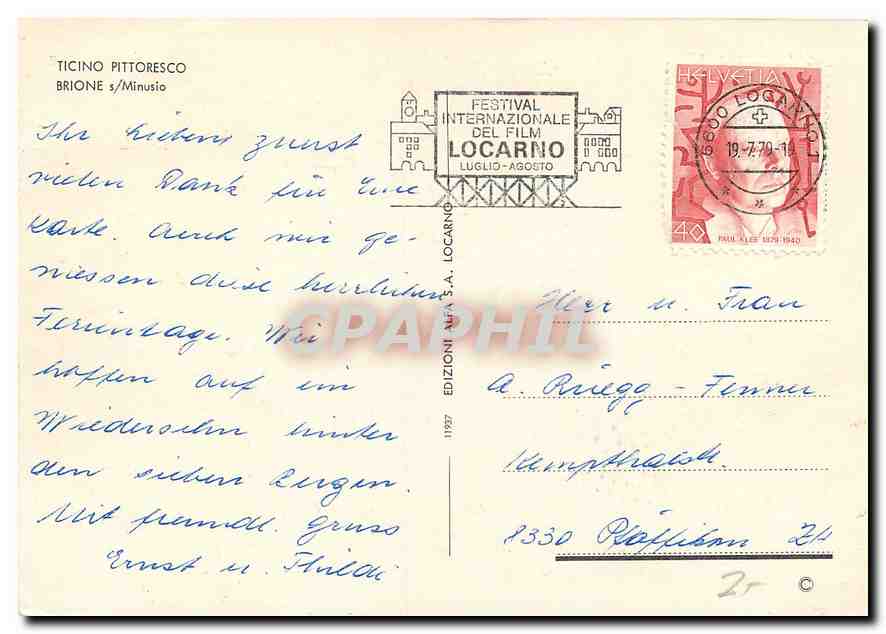 TICINO PITTORESCO
BRIONE s/Minusio
Ihr Lieben, zuerst
vielen Dank für Eure
Karte. Auch wir ge-
niessen diese herrlichen
Ferientage. Wir
hoffen auf ein
Wiedersehn hinter
den sieben Bergen.
Mit freundl. Gruss
Ernst u. Thildi
FESTIVAL
INTERNAZIONALE
DEL FILM
LOCARNO
LUGLIO - AGOSTO
HELVETIA
6600 LOCARNO 1
19.-7.79-19
40
PAUL KLEE 1879-1940
11937 EDIZIONI ALFA S.A. LOCARNO
CPAPHIL
Herr u. Frau
A. Rüegg - Fenner
Kempthalstr.
8330 Pfäffikon ZH
2.-
©